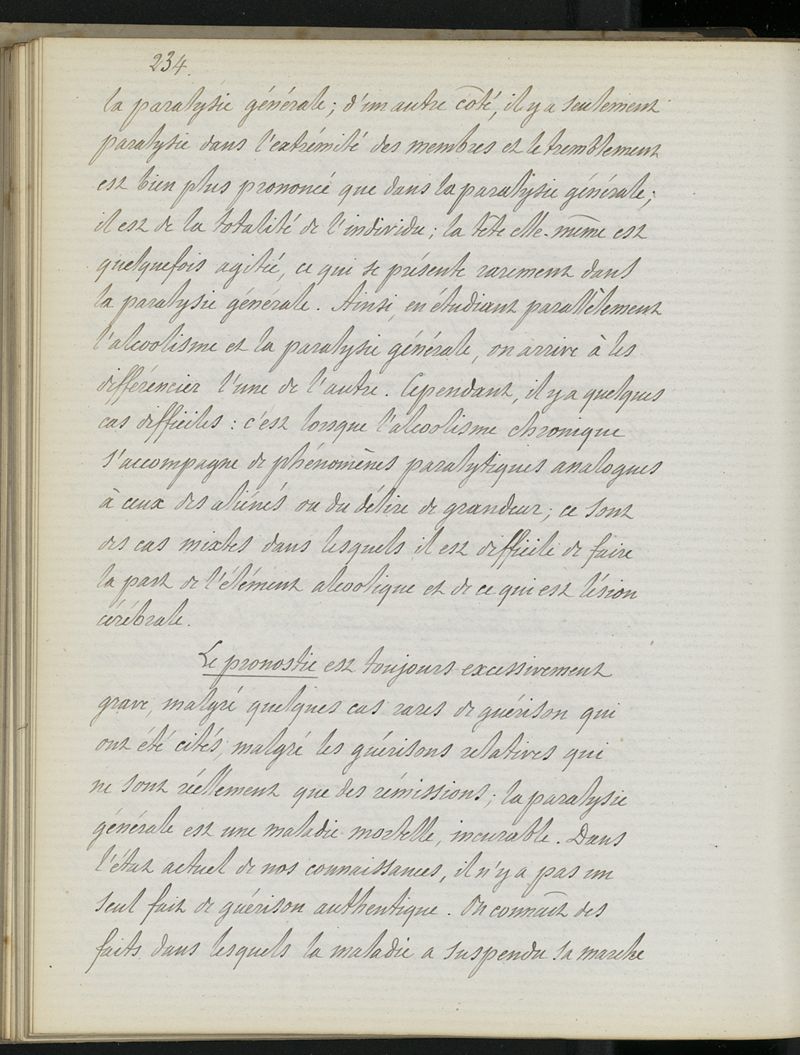 234.
la paralysie générale; d'un autre côté, il y a seulement
paralysie dans l'extrémité des membres et le tremblement
est bien plus prononcé que dans la paralysie générale;
il est de la totalité de l'individu; la tête elle-même est
quelquefois agitée, ce qui se présente rarement dans
la paralysie générale. Ainsi, en étudiant parallèlement
l'alcoolisme et la paralysie générale, on arrive à les
différencier l'une de l'autre. Cependant, il y a quelques
cas difficiles: c'est lorsque l'alcoolisme chronique
s'accompagne de phénomènes paralytiques analogues
à ceux des aliénés ou du délire de grandeur; ce sont
des cas mixtes dans lesquels il est difficile de faire
la part de l'élément alcoolique et de ce qui est lésion
cérébrale.
Le pronostic est toujours excessivement
grave, malgré quelques cas rares de guérison qui
ont été cités, malgré les guérisons relatives qui
ne sont réellement que des rémissions; la paralysie
générale est une maladie mortelle, incurable. Dans
l'état actuel de nos connaissances, il n'y a pas un
seul fait de guérison authentique. On connait des
faits dans lesquels la maladie a suspendu sa marche